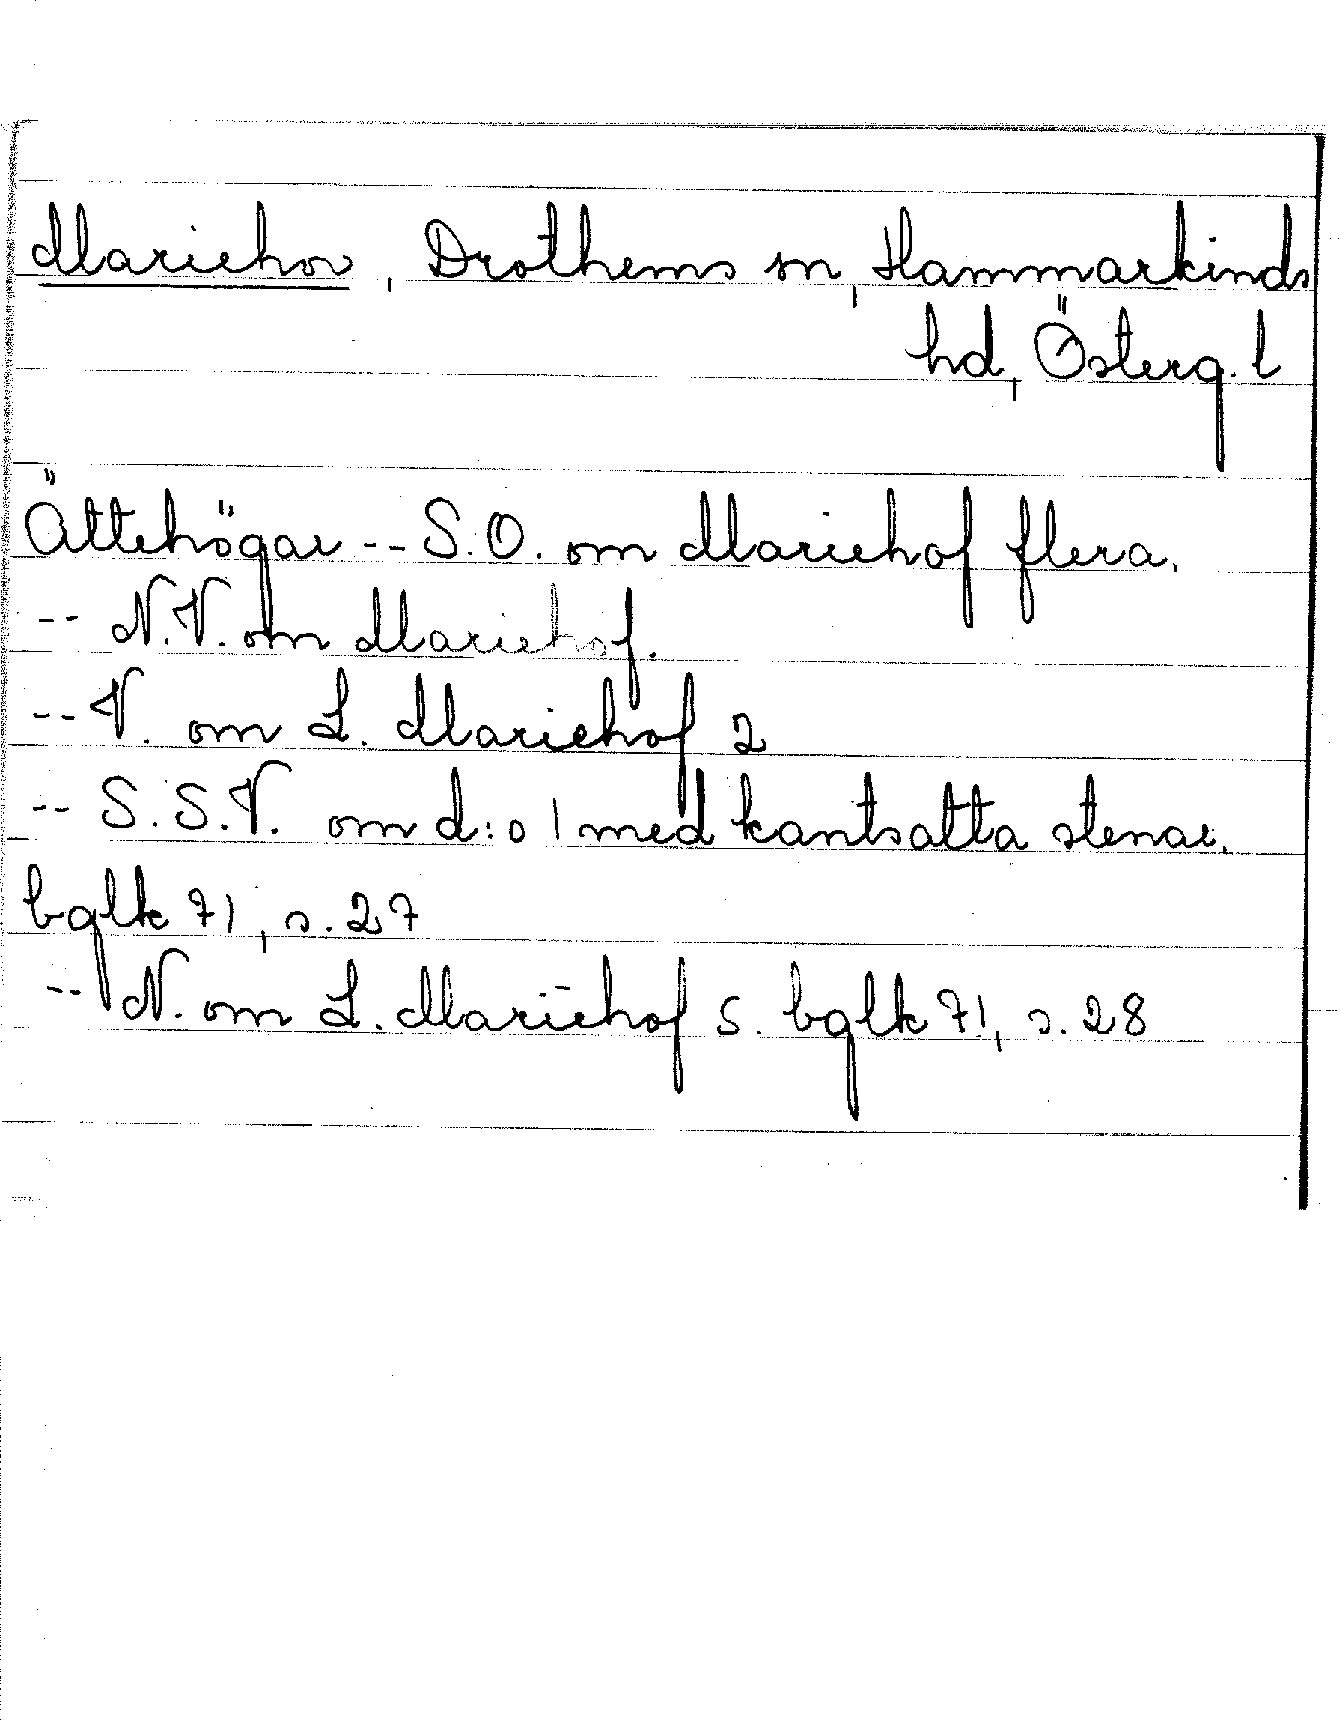 Mariehov, Drothems sn, Hammarkinds
hd, Österg. l
Ättehögar -- S.O. om Mariehof flera.
-- N.V. om Mariehof.
-- V. om L. Mariehof 2
-- S.S.V. om d:o 1 med kantsatta stenar.
bglk 71, s. 27
-- N. om L. Mariehof 5. bglk 71, s. 28